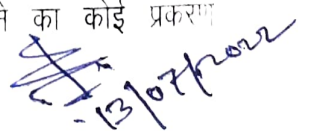 का कोई प्रकरण
13/07/2022